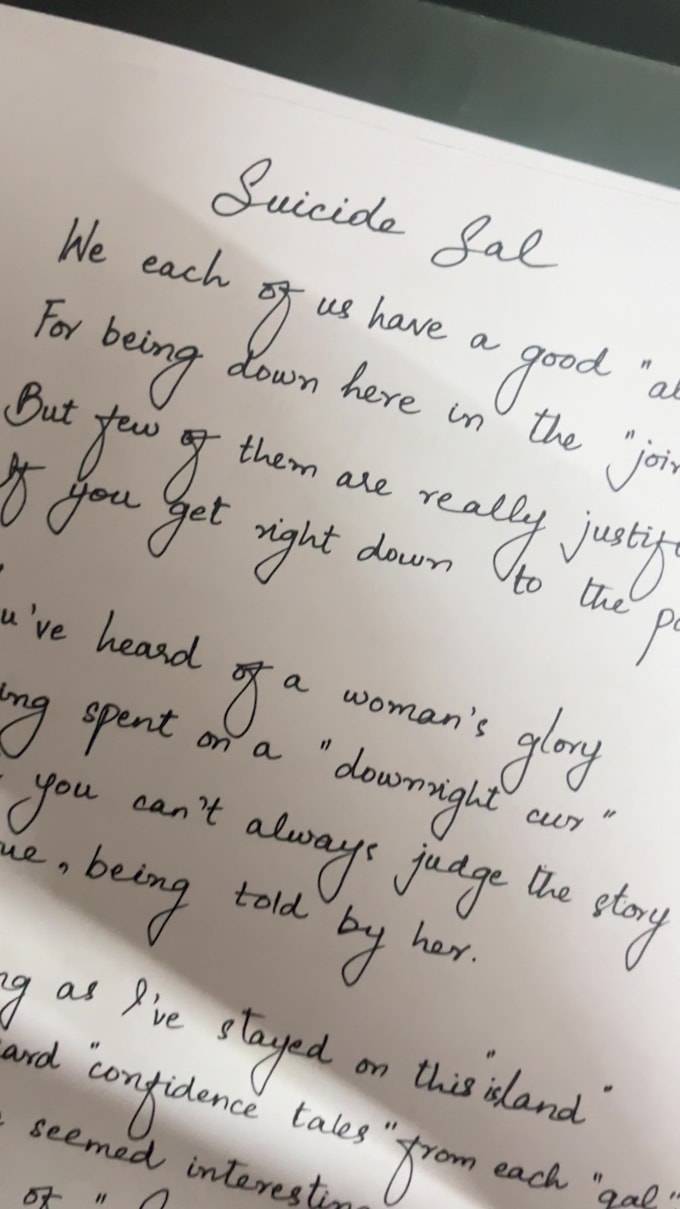 Suicide Sal
We each of us have a good "al
For being down here in the "join
But few of them are really justif
If you get right down to the po
u've heard of a woman's glory
ing spent on a "downright cur"
you can't always judge the story
ue, being told by her.
ng as I've stayed on this "island"
eard "confidence tales" from each "gal"
seemed interestin
of "